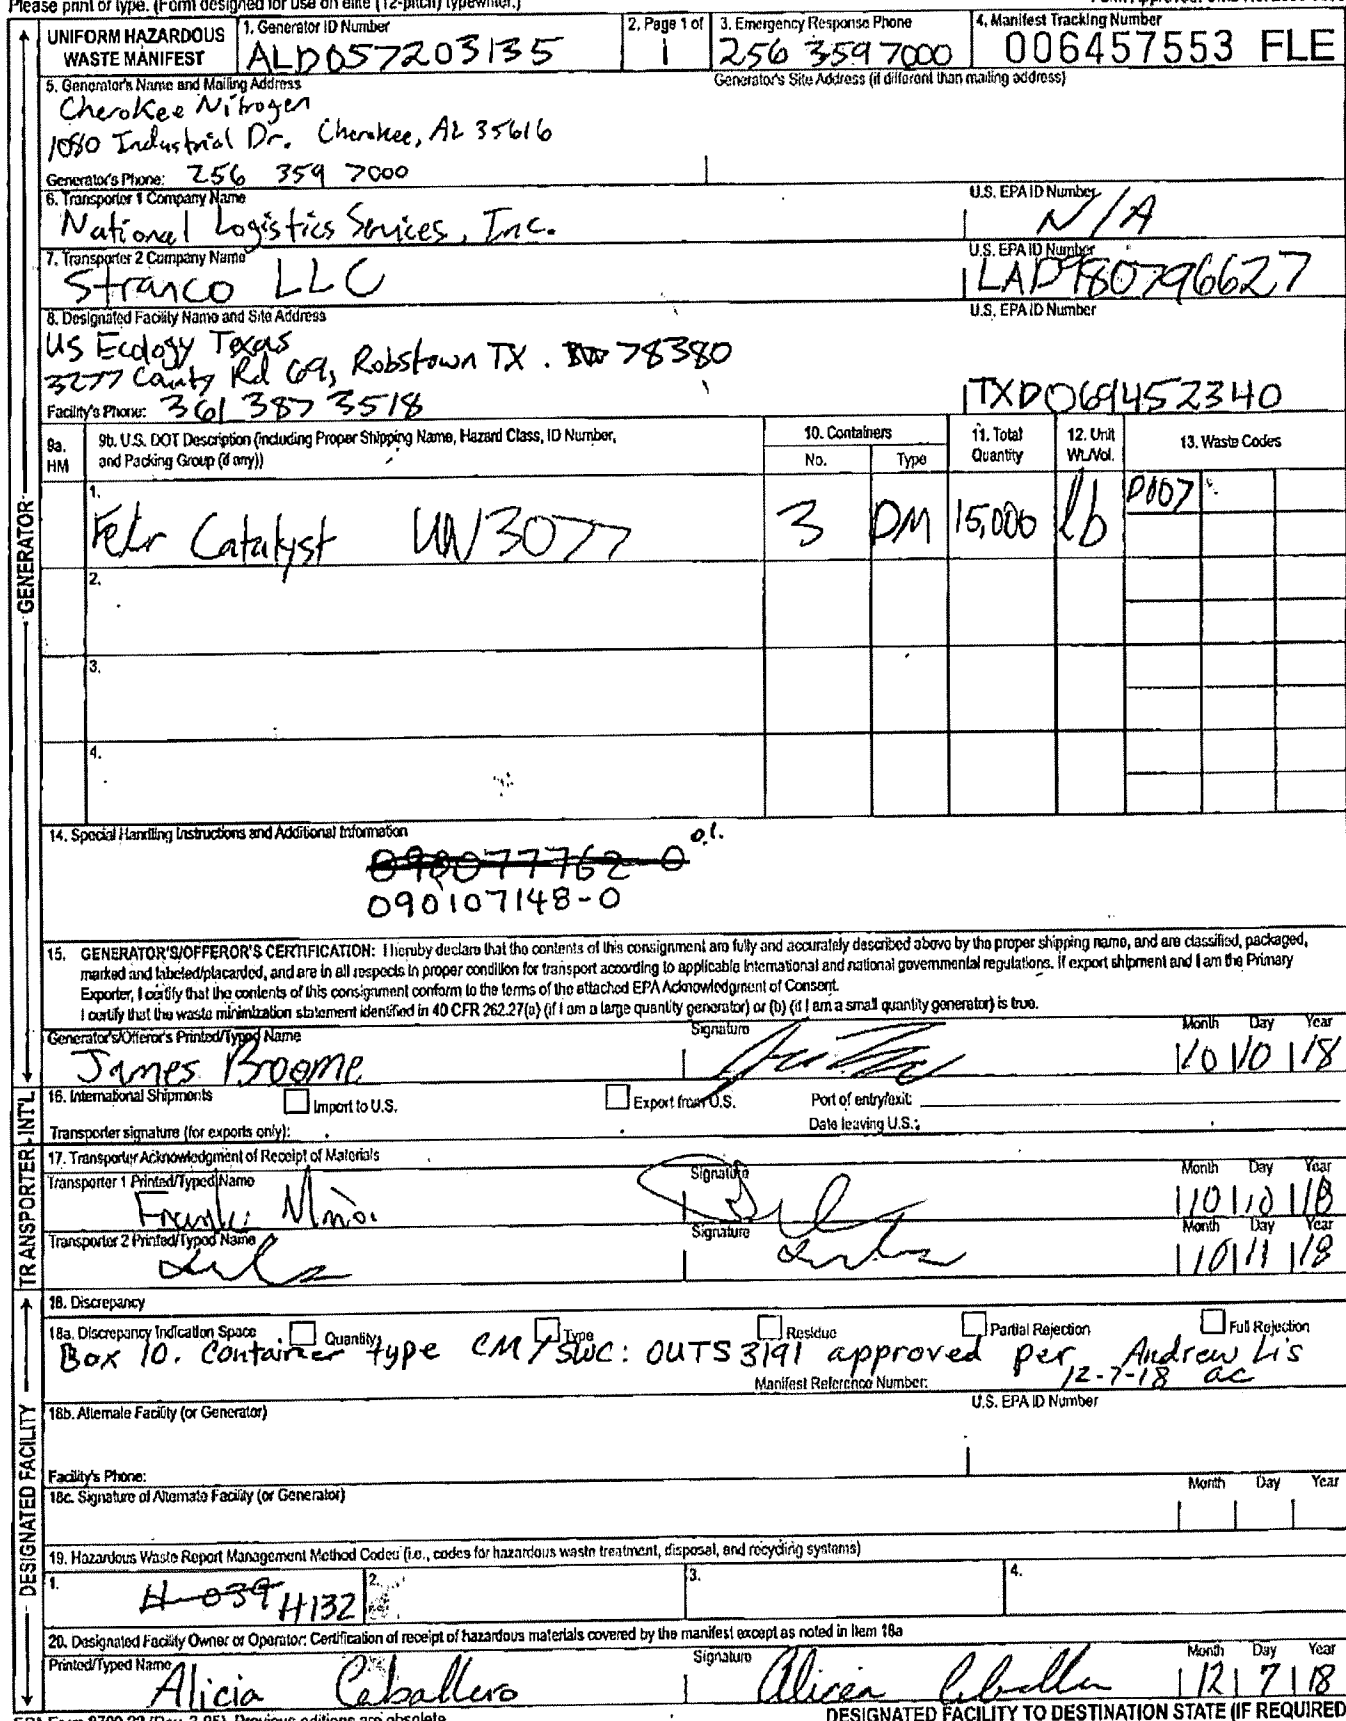 Please print or type. (Form designed for use on elite (12-pitch) typewriter.)
UNIFORM HAZARDOUS WASTE MANIFEST
1. Generator ID Number
ALD057203135
2. Page 1 of
1
3. Emergency Response Phone
256 359 7000
4. Manifest Tracking Number
006457553 FLE
5. Generator's Name and Mailing Address
Generator's Site Address (if different than mailing address)
Cherokee Nitrogen
1080 Industrial Dr. Cherokee, AL 35616
Generator's Phone: 256 359 7000
6. Transporter 1 Company Name
U.S. EPA ID Number
National Logistics Services, Inc.
N/A
7. Transporter 2 Company Name
U.S. EPA ID Number
Stranco LLC
LAD980796627
8. Designated Facility Name and Site Address
U.S. EPA ID Number
US Ecology Texas
3277 County Rd 69, Robstown TX. 78380
Facility's Phone: 361 387 3518
TXD069452340
9a. HM
9b. U.S. DOT Description (including Proper Shipping Name, Hazard Class, ID Number, and Packing Group (if any))
10. Containers
No.
Type
11. Total Quantity
12. Unit Wt./Vol.
13. Waste Codes
1.
FeCr Catalyst UN3077
3
DM
15,000
lb
D007
2.
3.
4.
14. Special Handling Instructions and Additional Information
098077762-0
090107148-0
15. GENERATOR'S/OFFEROR'S CERTIFICATION: I hereby declare that the contents of this consignment are fully and accurately described above by the proper shipping name, and are classified, packaged,
marked and labeled/placarded, and are in all respects in proper condition for transport according to applicable international and national governmental regulations. If export shipment and I am the Primary
Exporter, I certify that the contents of this consignment conform to the terms of the attached EPA Acknowledgment of Consent.
I certify that the waste minimization statement identified in 40 CFR 262.27(a) (if I am a large quantity generator) or (b) (if I am a small quantity generator) is true.
Generator's/Offeror's Printed/Typed Name
Signature
Month Day Year
James Broome
10 10 18
16. International Shipments
Import to U.S.
Export from U.S.
Port of entry/exit:
Transporter signature (for exports only):
Date leaving U.S.:
17. Transporter Acknowledgment of Receipt of Materials
Transporter 1 Printed/Typed Name
Signature
Month Day Year
10 10 18
Transporter 2 Printed/Typed Name
Signature
Month Day Year
10 11 18
18. Discrepancy
18a. Discrepancy Indication Space
Quantity
Type
Residue
Partial Rejection
Full Rejection
Box 10. Container type CM / SWC: OUTS3191 approved per Andrew Lis
12-7-18 ac
Manifest Reference Number:
18b. Alternate Facility (or Generator)
U.S. EPA ID Number
Facility's Phone:
18c. Signature of Alternate Facility (or Generator)
Month Day Year
19. Hazardous Waste Report Management Method Codes (i.e., codes for hazardous waste treatment, disposal, and recycling systems)
1.
H-039 H132
2.
3.
4.
20. Designated Facility Owner or Operator: Certification of receipt of hazardous materials covered by the manifest except as noted in Item 18a
Printed/Typed Name
Signature
Month Day Year
Alicia Caballero
Alicia Caballero
12 7 18
DESIGNATED FACILITY TO DESTINATION STATE (IF REQUIRED
GENERATOR
INT'L
TRANSPORTER
DESIGNATED FACILITY